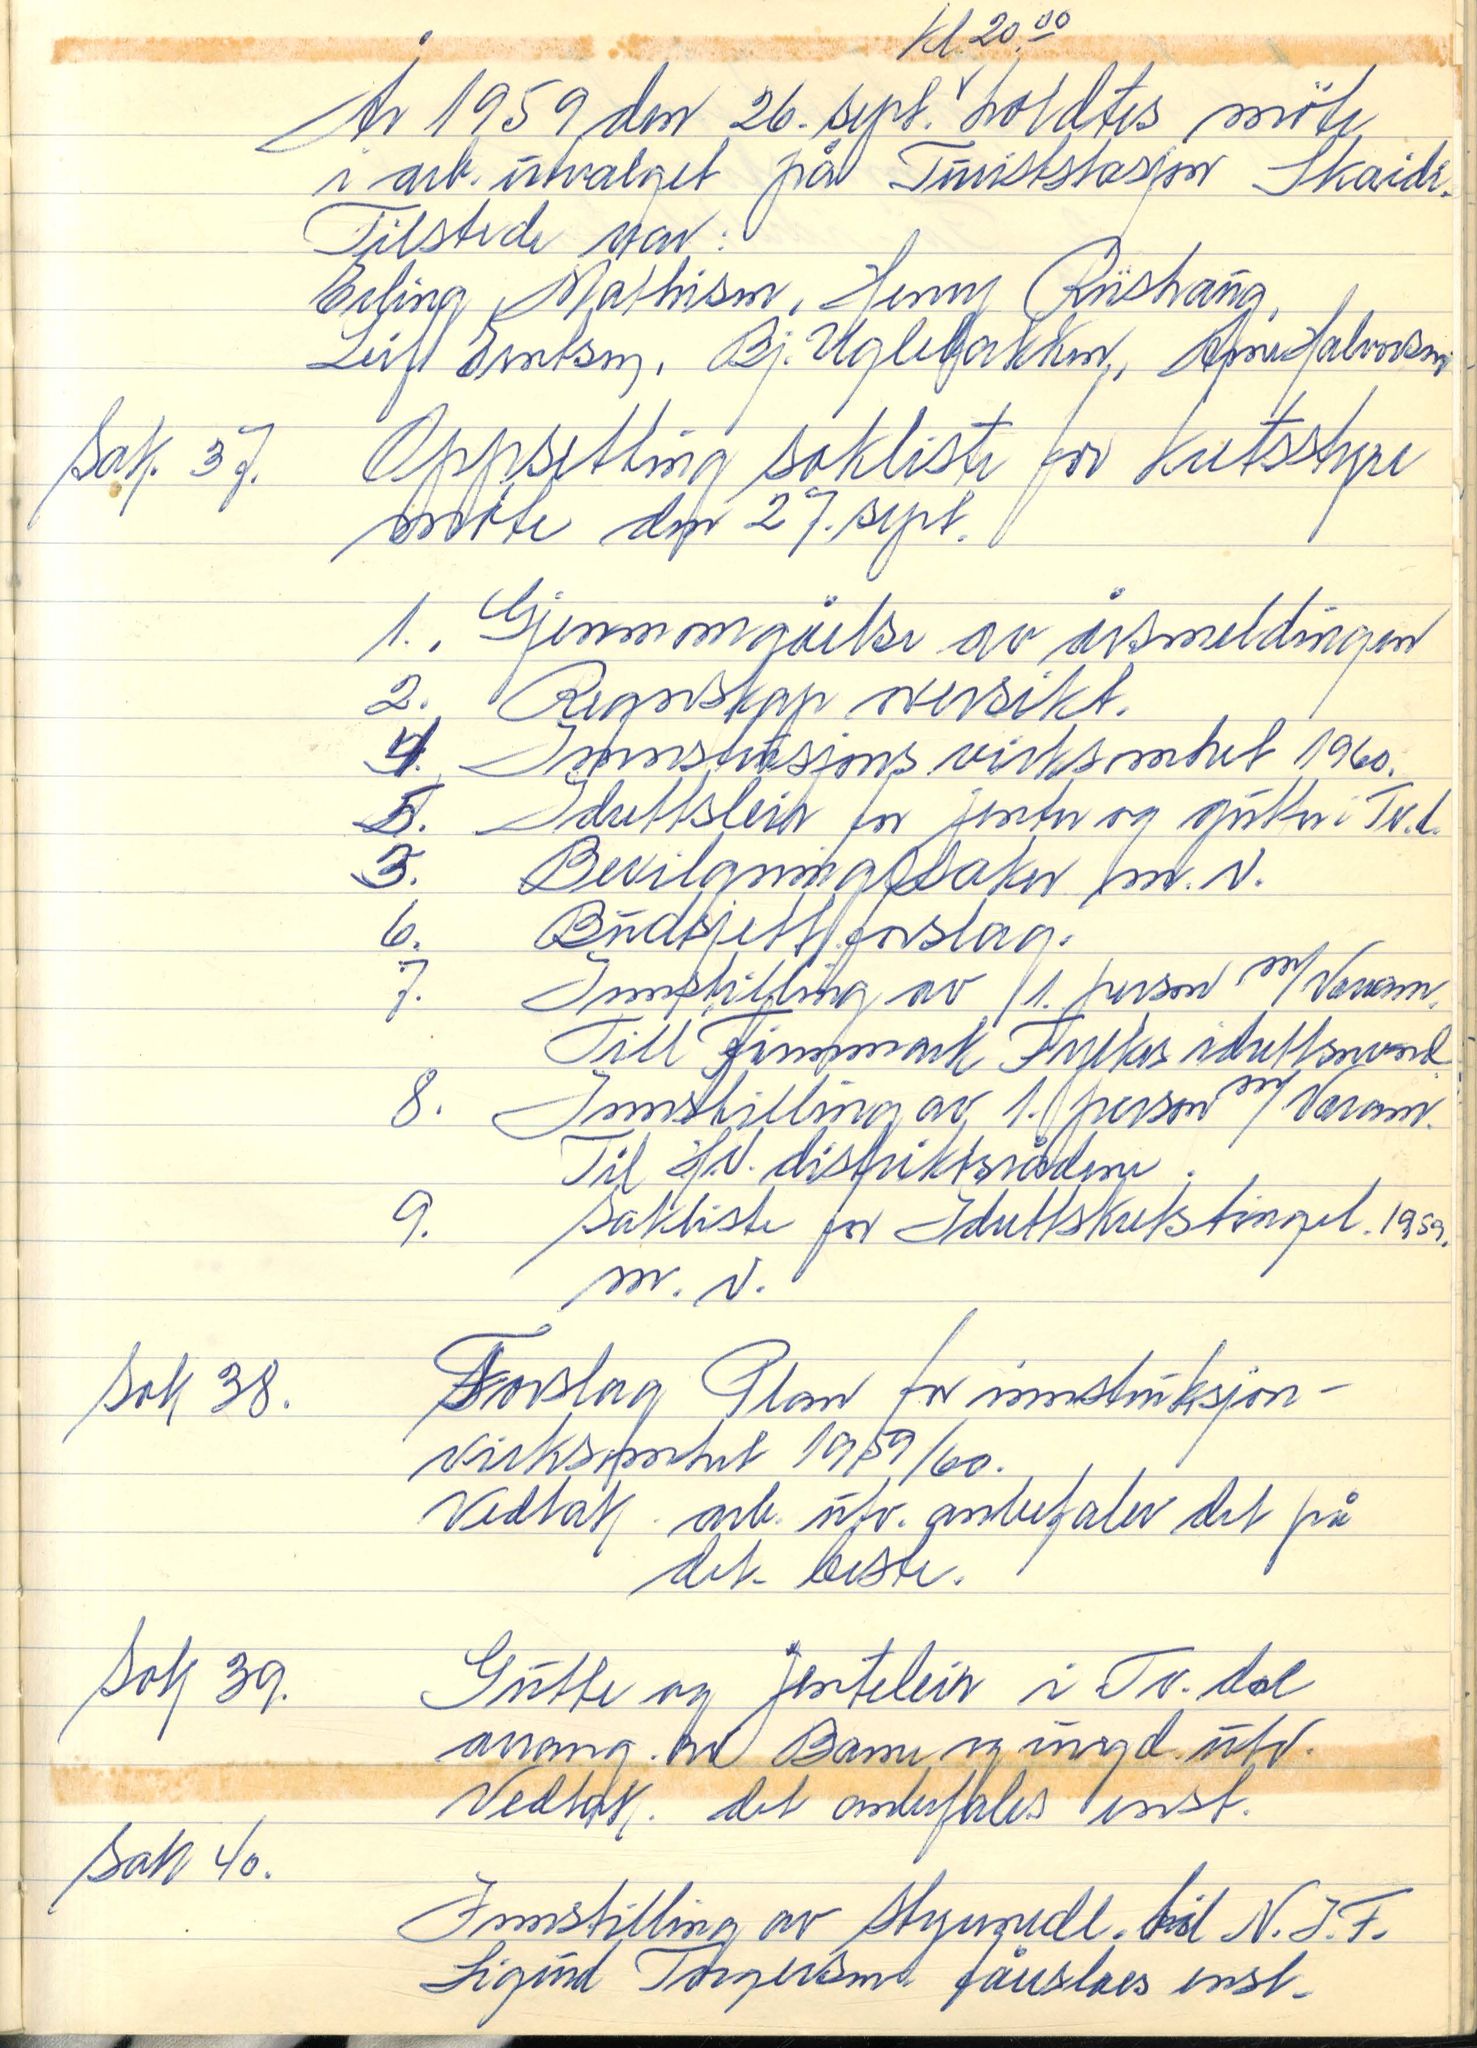 kl. 20.00
År 1959 den 26. sept. holdtes möte
i arb. utvalget på Turiststasjon Skaidi.
Tilstede var:
Erling Mathisen, Henry Rüshaug,
Leif Evertsen, Bj. Uglebakken, Arne Halvorsen
Sak. 37. Oppsetting sakliste for kretsstyre
möte den 27. sept.
1. Gjennomgåelse av årsmeldingen
2. Regnskap oversikt.
4. Innstruksjons virksomhet 1960.
5. Idrettsleir for jenter og gutter i Tv.d.
3. Bevilgningssaker m. v.
6. Budsjett forslag.
7. Innstilling av 1. person m/Varam.
Till Finnmark Fylkes idrettsnemd
8. Innstilling av 1. person m/Varam.
Til H.V. distriktsrådene.
9. Sakliste for Idrettskretstinget. 1959.
m. v.
Sak 38. Forslag Plan for innstruksjon-
virksomhet 1959/60.
Vedtak. arb. utv. anbefaler det på
det beste.
Sak 39. Gutte og jenteleir i Tv. dal
arrang. av Barne og ungd. utv.
Vedtak. det anbefales enst.
Sak 40.
Innstilling av styremedl. til N.I.F.
Sigurd Torgersen foreslåes enst.